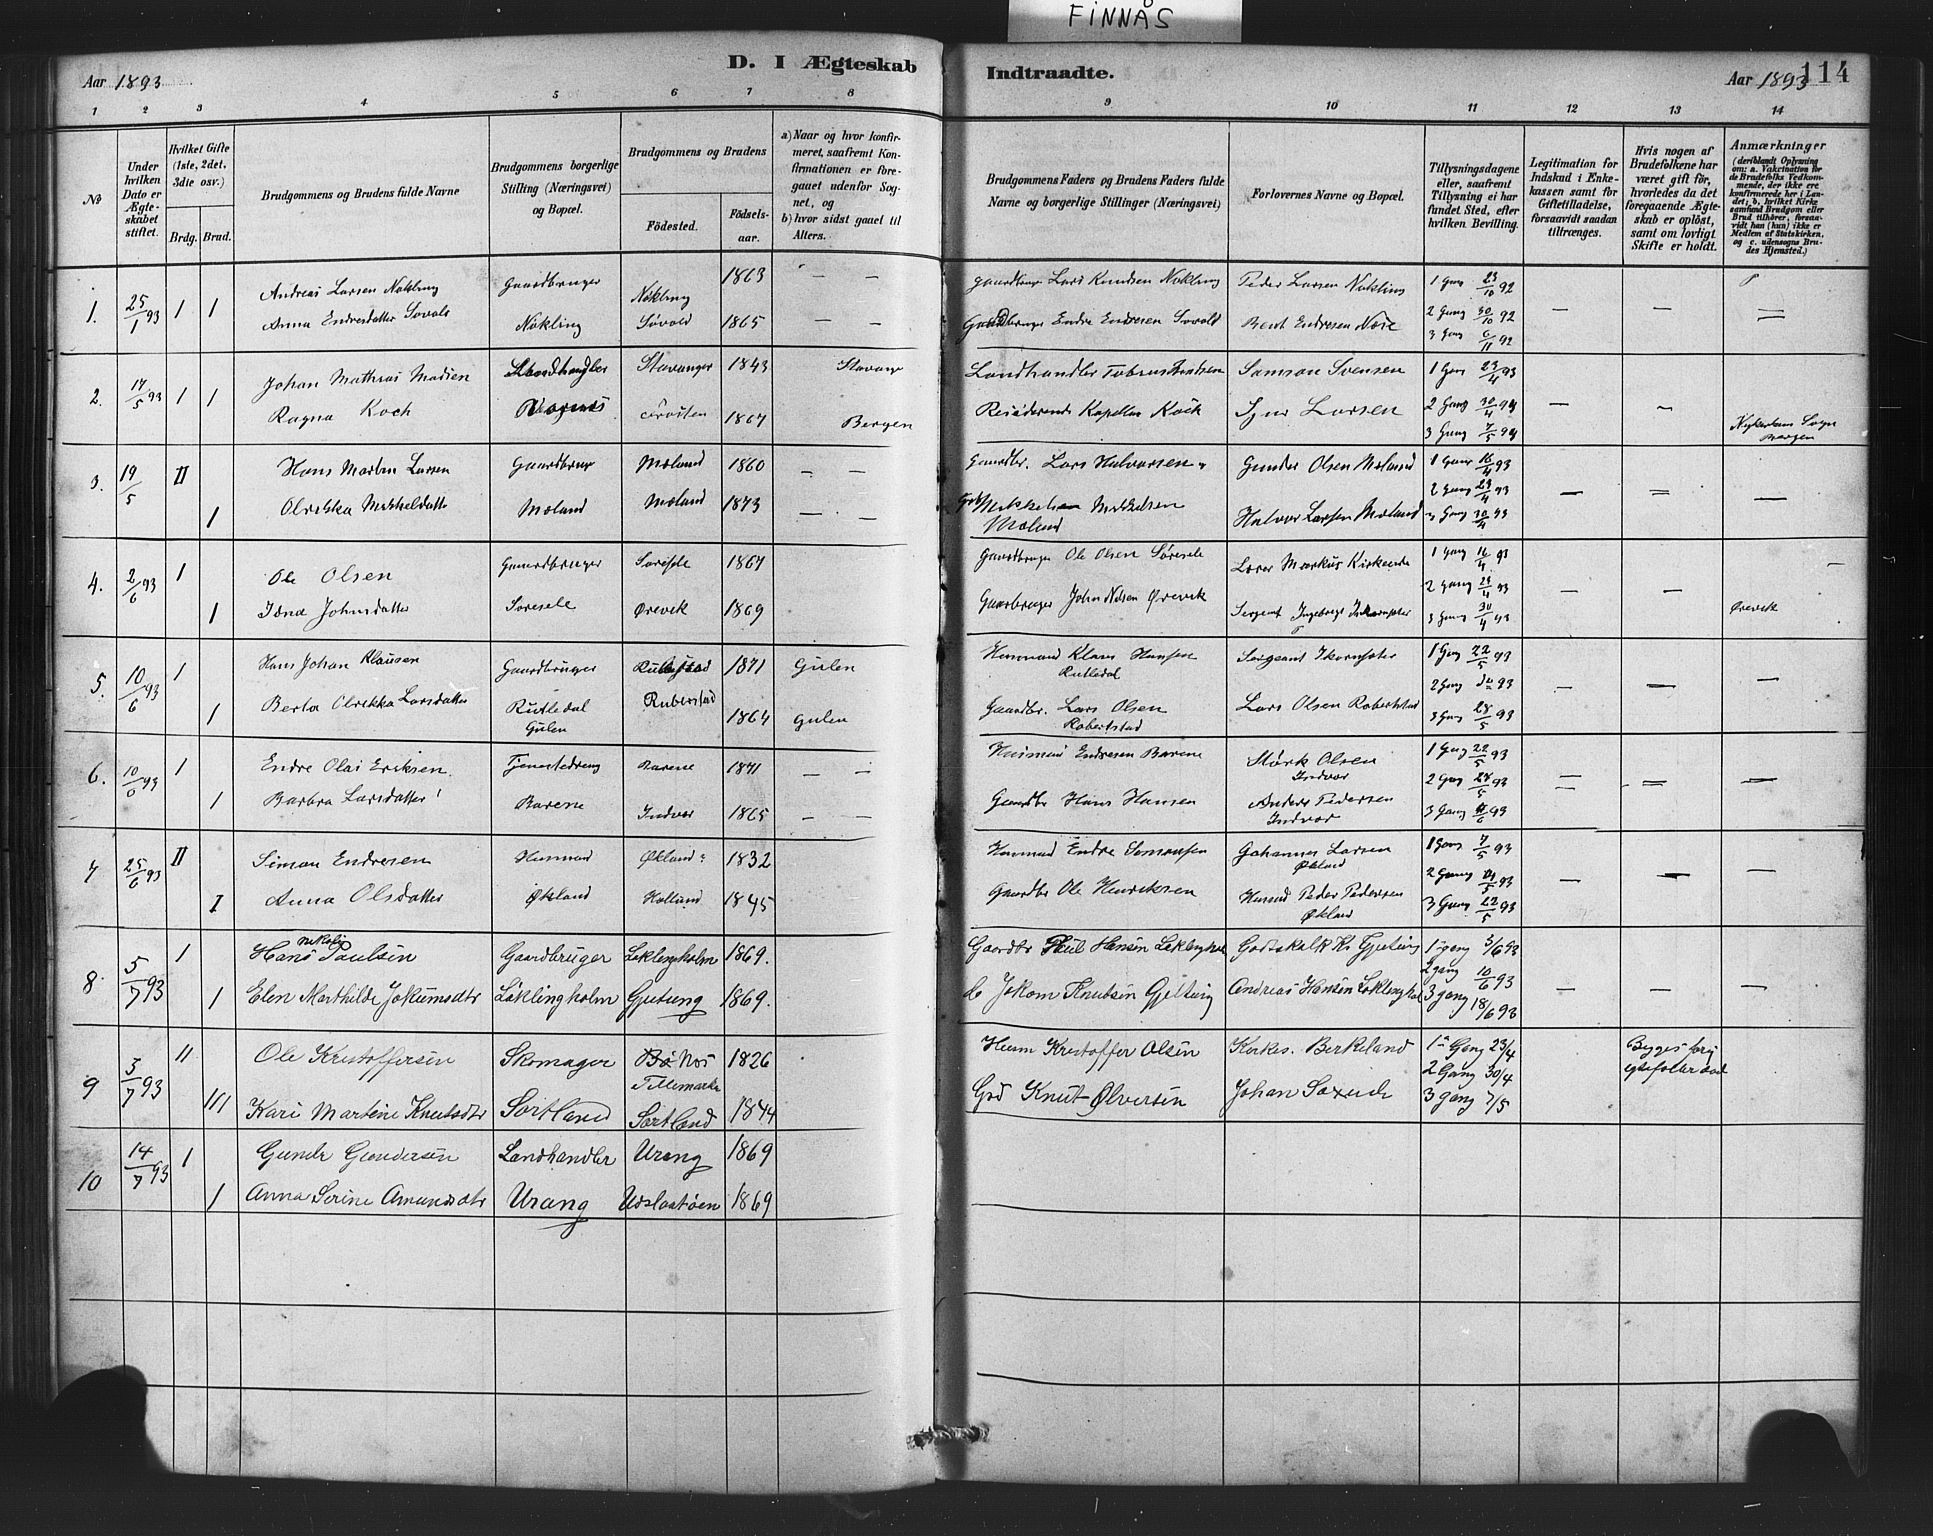 FINNÅS
Aar 1893
D. I Ægteskab
Indtraadte.
Aar 1893
114
1 2 3 4 5 6 7 8 9 10 11 12 13 14
No
Under hvilken Dato er Ægteskabet stiftet.
Hvilket Gifte (1ste, 2det, 3die osv.)
Brdg. Brud.
Brudgommens og Brudens fulde Navne
Brudgommens borgerlige Stilling (Næringsvei) og Bopæl.
Brudgommens og Brudens
Fødested.
Fødselsaar.
a) Naar og hvor konfirmeret, saafremt Konfirmationen er foregaaet udenfor Sognet, og
b) hvor sidst gaaet til Alters.
Brudgommens Faders og Brudens Faders fulde Navne og borgerlige Stillinger (Næringsvei)
Forlovernes Navne og Bopæl.
Tillysningsdagene eller, saafremt Tillysning ei har fundet Sted, efter hvilken Bevilling.
Legitimation for Indskud i Enkekassen samt for Giftetilladelse, forsaavidt saadan tiltrænges.
Hvis nogen af Brudefolkene har været gift før, hvorledes da det foregaaende Ægteskab er opløst, samt om lovligt Skifte er holdt.
Anmærkninger
(deriblandt Oplysning om: a. Vaksination for de Brudefolks Vedkommende, der ikke ere konfirmerede her i Landet; b. hvilket Kirkesamfund Brudgom eller Brud tilhører, forsaavidt han (hun) ikke er Medlem af Statskirken, og c. udensogns Brudes Hjemsted.)
1. 25/1 93 1 1 Andreas Larsen Nøkling Gaardbruger Nøkling 1863 — — Gaardbruger Lars Knudsen Nøkling Peder Larsen Nøkling 1 Gang 23/10 92
Anna Endresdatter Søvold Nøkling Søvold 1865 — — Gaardbruger Endre Endresen Søvold Bent Endresen 2 Gang 30/10 92 — — —
3 Gang 6/11 92
2. 17/5 93 1 1 Johan Mathias Madsen Landhandler Stavanger 1843 Stavanger Landhandler Samson Svensen 1 Gang 23/4 93
Ragna Koch 1867 Bergen Residerende Kapellan Koch Larsen 2 Gang 30/4 94 — —
3 Gang 7/5 94 Nykirkens Sogn Bergen
3. 19/5 II Hans Martin Larsen Gaardbruger Moland 1860 — — Gaardbr. Lars Halvorsen Gunder Olsen Moland 1 Gang 16/4 93
1 Mikkeldatter Moland Moland 1873 — — Mikkelsen Moland Halvor Larsen Moland 2 Gang 23/4 93 — — —
3 Gang 30/4 93
4. 2/6 93 1 Ole Olsen Gaardbruger Søresele 1867 Gaardbruger Ole Olsen Søresele Lærer Markus 1 Gang 16/4 93
1 Johnsdatter Søresele Ørevik 1869 Gaarbruger John Nilsen Ørevik Sergeant 2 Gang 23/4 93 — — Ørevik
3 Gang 30/4 93
5. 10/6 93 1 Hans Johan Klausen Gaardbruger 1871 Gulen Husmand Klaus Hansen Rutledal Sergeant 1 Gang 22/5 93
1 Berta Olrikka Larsdatter Rutledal Gulen Ruberstad 1864 Gulen Gaardbr. Lars Olsen Robertstad Lars Olsen Robertstad 2 Gang 93 — — —
3 Gang 28/5 93
6. 10/6 93 1 Endre Olai Eriksen Tjenestedreng Barene 1871 — — Husmand Endresen Barene Størk Olsen Indvær 1 Gang 22/5 93
1 Barbra Larsdatter Barene Indvær 1865 — — Gaardbr Hans Hansen Anders Pedersen Indvær 2 Gang 28/5 93 — — —
3 Gang 93
7 25/6 93 II Simon Endresen Husmand Økland 1832 Husmand Endre Simonsen Johannes Larsen Økland 1 Gang 7/5 93
I Anna Olsdatter Økland Hollund 1845 Gaardbr Ole Henriksen Husmd Peder Pedersen Økland 2 Gang 14/5 93 — — —
3 Gang 22/5 93
8 5/7 93 1 Hans Nikolai Paulsen Gaardbruger Løklingholm 1869. Gaardbr Poul Hansen Løklingholm Godtskalk Kr Gjetung 1 gang 3/6 93
1 Elen Marthilde Jokumsdtr Løklingholm Gjetung 1869. do Jokom Knutsen Gjetung Andreas Hansen Løklinghol 2 gang 10/6 93 — — —
3 gang 18/6 93
9 3/7 93 II Ole Kristoffersen Skomager Bø Tillemarke 1826 Husm Kristoffer Olsen Kirkes. Birkeland 1 Gang 23/4 Begges forrige
III Kari Martine Knutsdtr Sørtland Sørtland 1844 Grd Knut Ølversen Johan 2 Gang 30/4
3 gang 7/5
10 14/7 93 1 Gunder Gundersen Landhandler Urang 1869
1 Anna Serine Amundsdtr Urang Udslaatøen 1869